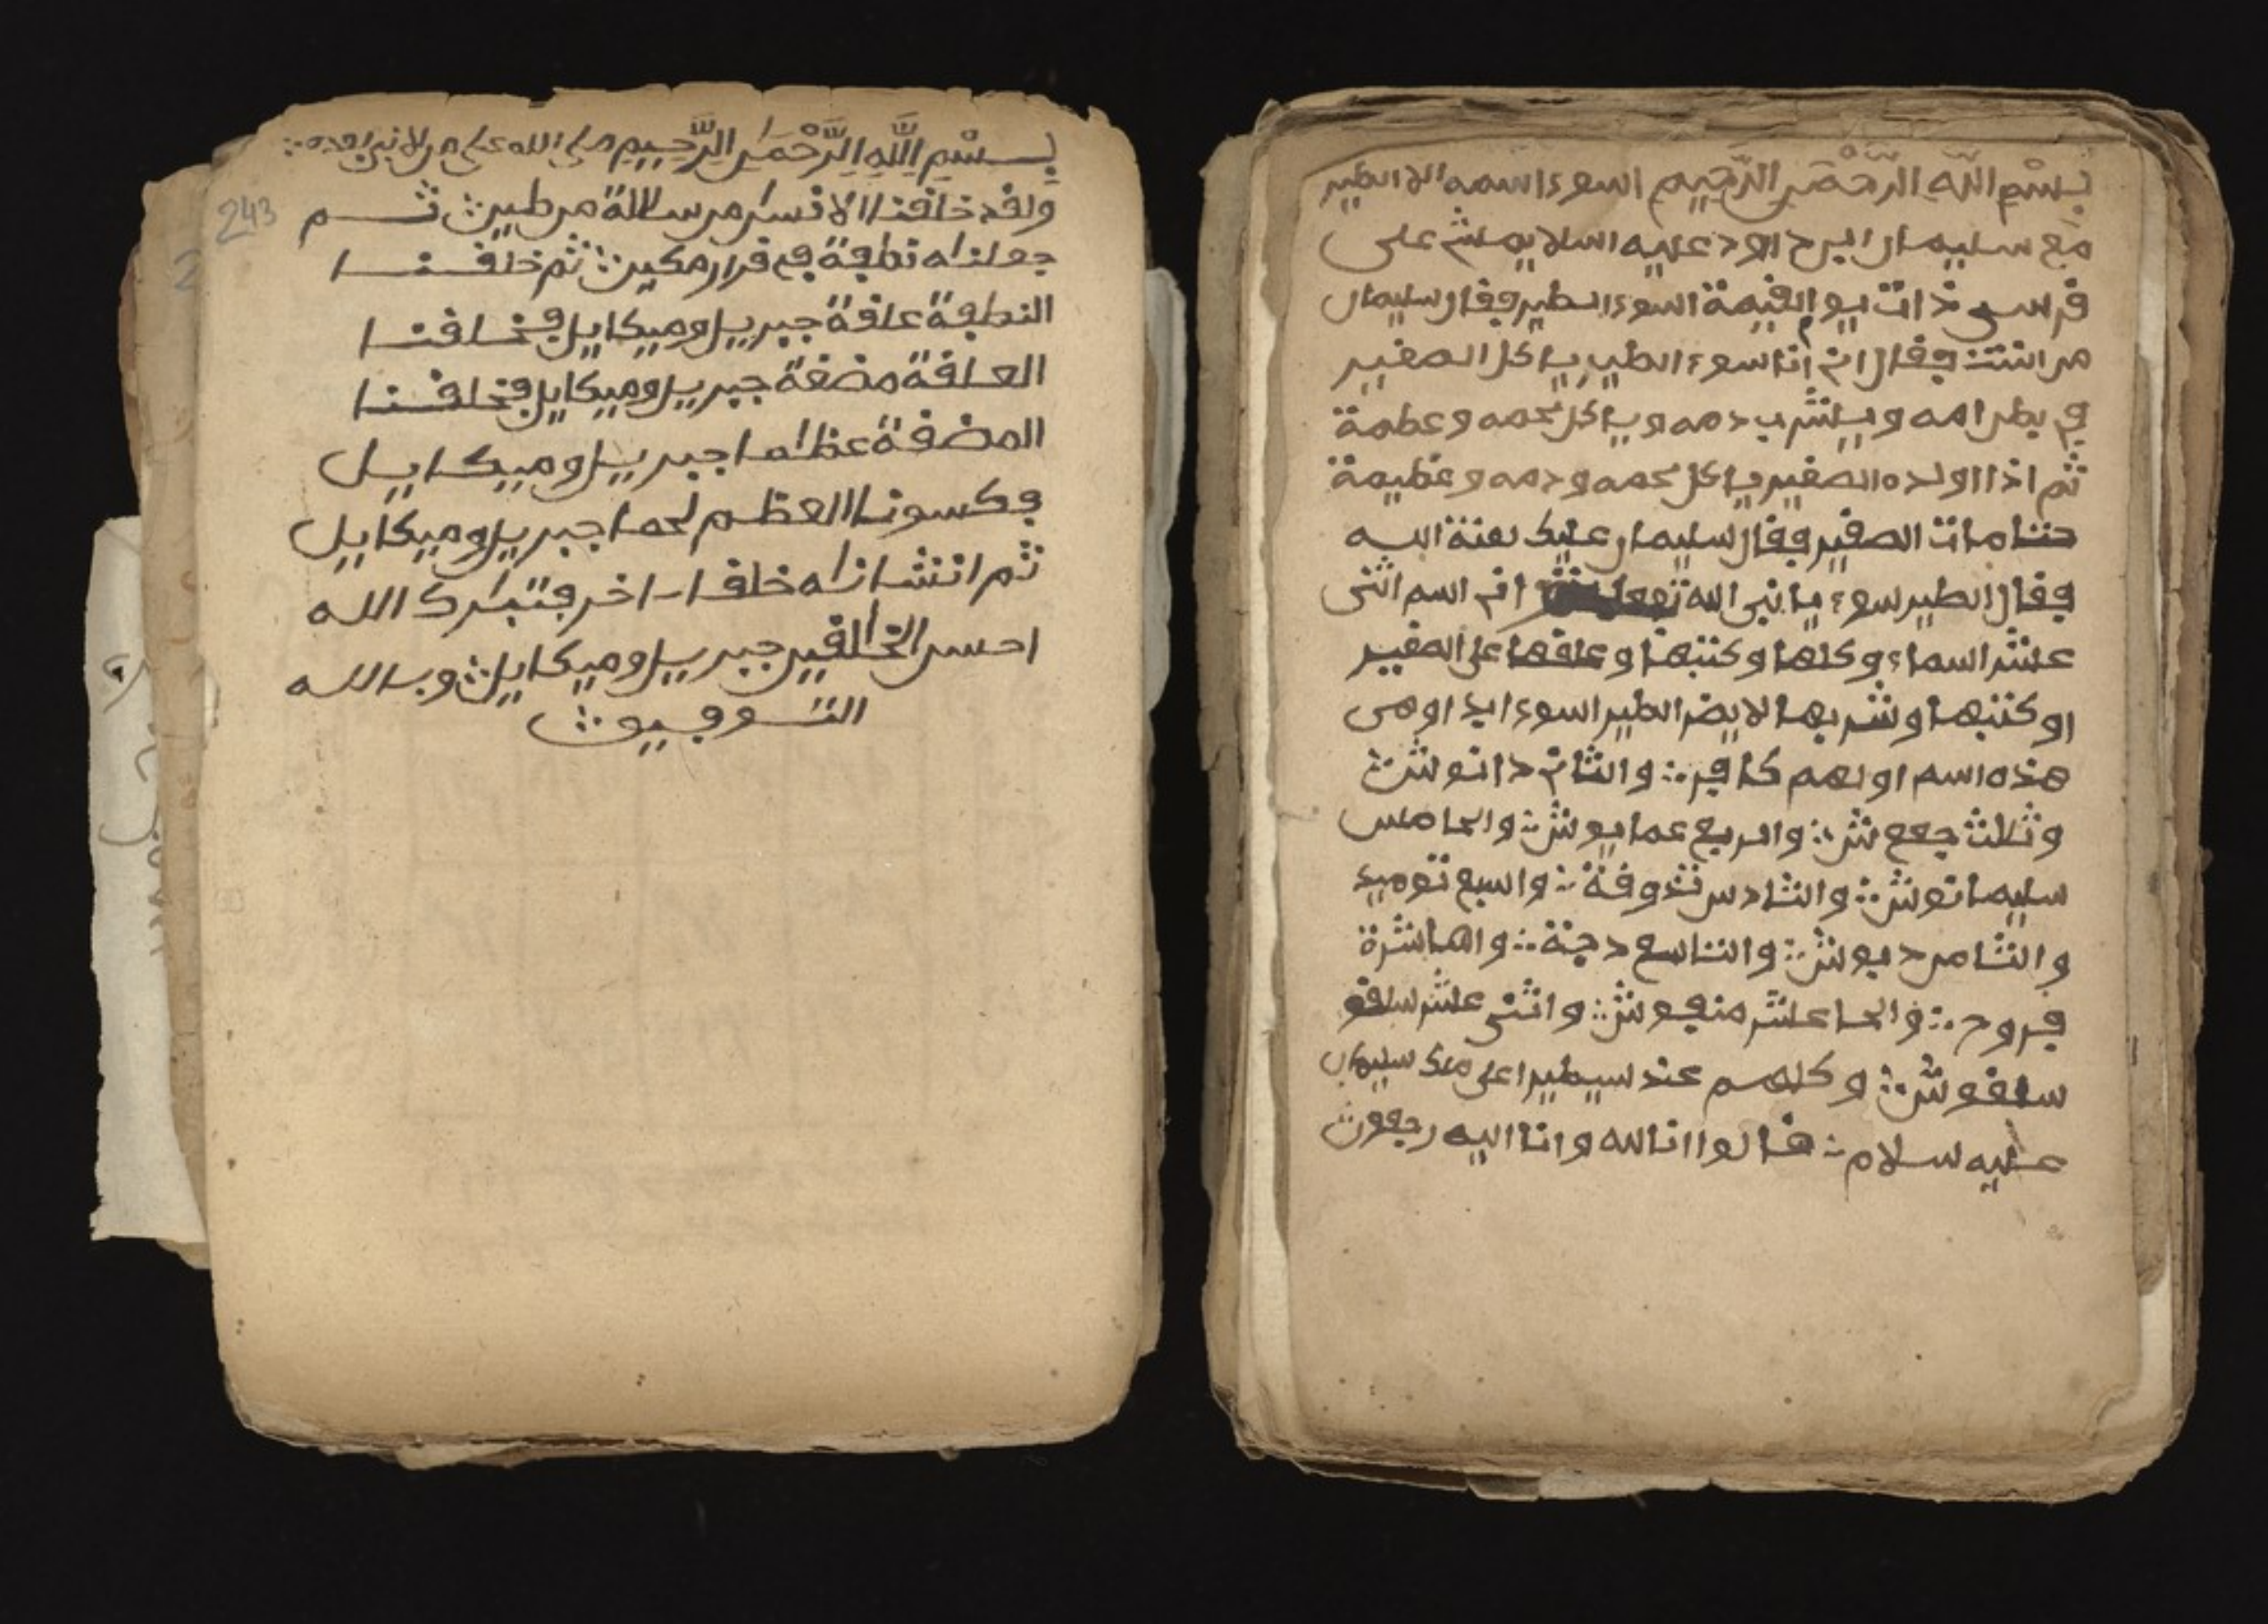 بِسْمِ اللَّهِ الرَّحْمَنِ الرَّحِيمِ اسوء اسمه الا الطير
مع سليمان ابن داود عليه السلا يمش على
فرسى ذات يوم القيمة اسوء الطير فقال سليمان
من انت فقال اني انا سوء الطير ياكل الصغير
في بطن امه ويشرب دمه وياكل لحمه وعظمة
ثم اذا اولده الصغير ياكل لحمه ودمه وعظيمة
حتا مات الصغير فقال سليمان عليك لعنة الله
فقال الطير سوء يا نبي الله تفعل اني اسم اثنى
عشر اسماء وكلها وكتبها وعلقها على الصغير
او كتبها وشربها لا يضر الطير اسوء ابدا وهى
هذه اسم اولهم كافر والثاني دانوش
وثالث جعع ش والربع عمايوش والخامس
سليمانوش والشادس شدوفة والسبع توميد
والثامن ديوش والتاسع دجنة والعاشرة
فروح والحا عشر منفوش واثنى عشر سلقو
سلفوش وكلهم عند سيطيرا على ملك سليمان
عليه سلام قالوا انا لله وانا اليه رجعون
بِسْمِ اللَّهِ الرَّحْمَنِ الرَّحِيمِ صلى الله على من لا نبي بعده
ولقد خلقنا الانسان من سلالة من طين ثم
جعلناه نطفة في قرار مكين ثم خلقنا
النطفة علقة جبريل وميكايل فخلقنا
العلقة مضغة جبريل وميكايل فخلقنا
المضغة عظاما جبريل وميكايل
فكسونا العظم لحما جبريل وميكايل
ثم انشاناه خلقا اخر فتبارك الله
احسن الخالقين جبريل وميكايل وبالله
التوفيق
243